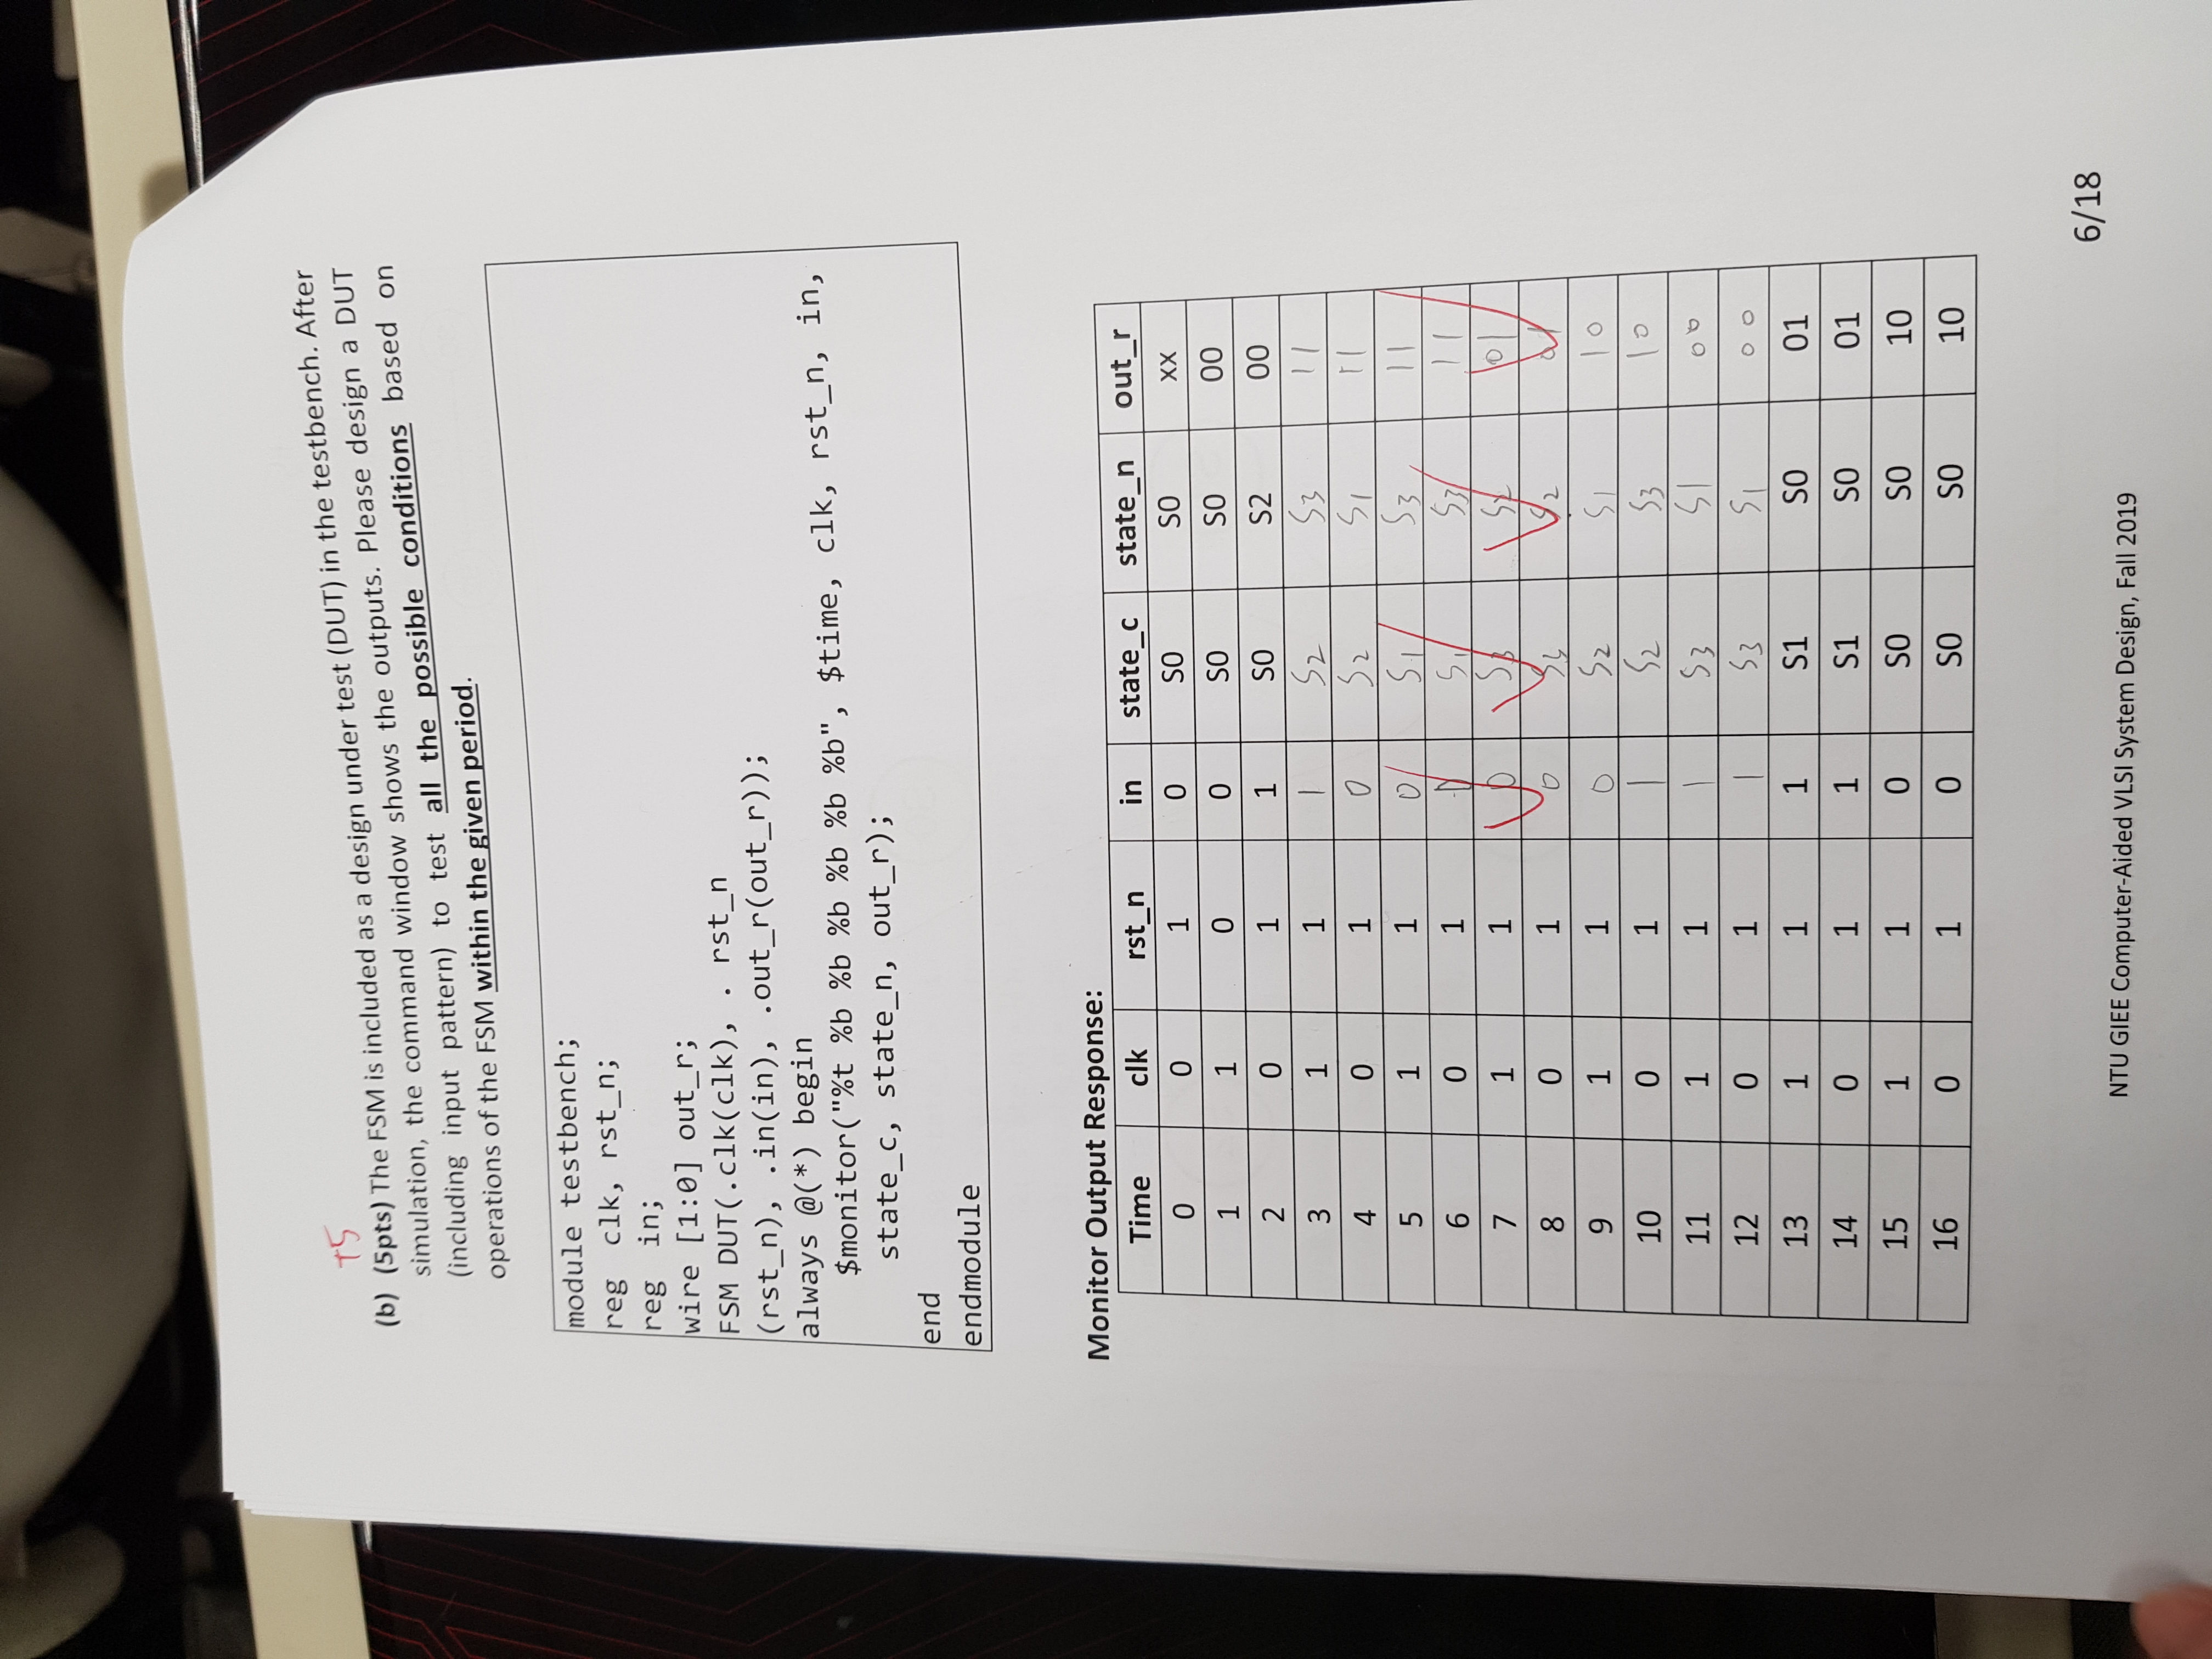 +5
(b) (5pts) The FSM is included as a design under test (DUT) in the testbench. After
simulation, the command window shows the outputs. Please design a DUT
(including input pattern) to test all the possible conditions based on
operations of the FSM within the given period.
module testbench;
reg clk, rst_n;
reg in;
wire [1:0] out_r;
FSM DUT(.clk(clk), . rst_n
(rst_n), .in(in), .out_r(out_r));
always @(*) begin
$monitor("%t %b %b %b %b %b %b", $time, clk, rst_n, in,
state_c, state_n, out_r);
end
endmodule
Monitor Output Response:
Time clk rst_n in state_c state_n out_r
0 0 1 0 S0 S0 xx
1 1 0 0 S0 S0 00
2 0 1 1 S0 S2 00
3 1 1 1 S2 S3 11
4 0 1 0 S2 S1 11
5 1 1 0 S1 S3 11
6 0 1 0 S1 S3 11
7 1 1 0 S3 S2 01
8 0 1 0 S3 S2 01
9 1 1 0 S2 S1 10
10 0 1 1 S2 S3 10
11 1 1 1 S3 S1 00
12 0 1 1 S3 S1 00
13 1 1 1 S1 S0 01
14 0 1 1 S1 S0 01
15 1 1 0 S0 S0 10
16 0 1 0 S0 S0 10
6/18
NTU GIEE Computer-Aided VLSI System Design, Fall 2019